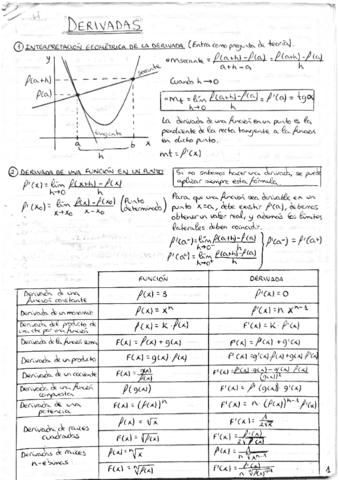 DERIVADAS
① INTERPRETACIÓN GEOMÉTRICA DE LA DERIVADA (Entra como pregunta de teoría).
y
secante
f(a+h)
f(a)
tangente
a b x
h
• m secante = f(a+h)-f(a) / a+h-a = f(a+h)-f(a) / h
Cuando h→0
• mt = lim h→0 f(a+h)-f(a) / h = f'(a) = tg α
La derivada de una función en un punto es la
pendiente de la recta tangente a la función
en dicho punto.
mt = f'(x)
② DERIVADA DE UNA FUNCIÓN EN UN PUNTO
Si no sabemos hacer una derivada, se puede
aplicar siempre esta fórmula
f'(x) = lim h→0 f(x+h)-f(x) / h
f'(x₀) = lim x→x₀ f(x)-f(x₀) / x-x₀ (Punto determinado)
Para que una función sea derivable en un
punto x=a, debe existir f(a), debemos
obtener un valor real, y además los límites
laterales deben coincidir.
f'(a⁻) = lim h→0⁻ f(a+h)-f(a) / h
f'(a⁺) = lim h→0⁺ f(a+h)-f(a) / h
f'(a⁻) = f'(a⁺)
FUNCIÓN DERIVADA
Derivada de una función constante f(x) = 3 f'(x) = 0
Derivada de un monomio f(x) = xⁿ f'(x) = n xⁿ⁻¹
Derivada del producto de una cte por una función F(x) = K · f(x) F'(x) = K · f'(x)
Derivada de la función suma F(x) = f(x) + g(x) F'(x) = f'(x) + g'(x)
Derivada de un producto F(x) = g(x) · f(x) F'(x) = g'(x) · f(x) + g(x) · f'(x)
Derivada de un cociente
Derivada de una función compuesta f(g(x)) F'(x) = f'(g(x)) · g'(x)
Derivada de una potencia F(x) = (f(x))ⁿ F'(x) = n · (f(x))ⁿ⁻¹ · f'(x)
Derivada de raíces cuadradas f(x) = √x f'(x) = 1 / 2√x
F(x) = √f(x) F'(x) = f'(x) / 2√f(x)
Derivadas de raíces n-ésimas f(x) = ⁿ√x
F(x) = ⁿ√f(x)
1